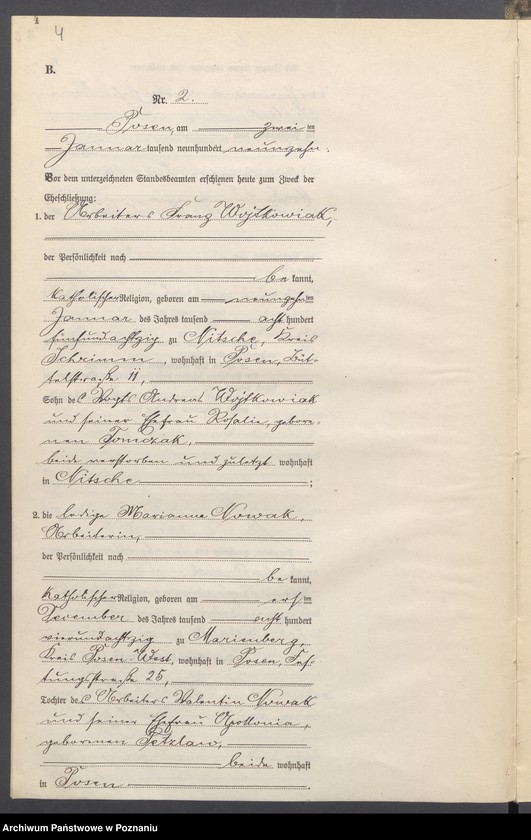 4
4
B.
Nr. 2.
Posen, am zwei ten
Januar tausend neunhundert neunzehn.
Vor dem unterzeichneten Standesbeamten erschienen heute zum Zweck der
Eheschließung:
1. der Arbeiter Franz Wojtkowiak,
der Persönlichkeit nach
be kannt,
katholischer Religion, geboren am neunzehn ten
Januar des Jahres tausend acht hundert
fünfundachtzig zu Nitsche, Kreis
Schrimm, wohnhaft in Posen, Büt-
telstraße 11,
Sohn des Vogts Andreas Wojtkowiak
und seiner Ehefrau Rosalie, gebore-
nen Tomczak,
beide verstorben und zuletzt wohnhaft
in Nitsche ;
2. die ledige Marianna Nowak,
Arbeiterin,
der Persönlichkeit nach
be kannt,
katholischer Religion, geboren am ers ten
December des Jahres tausend acht hundert
vierundachtzig zu Marienberg,
Kreis Posen-West, wohnhaft in Posen, Fes-
tungsstraße 25,
Tochter des Arbeiters Valentin Nowak
und seiner Ehefrau Apollonia,
geborenen
beide wohnhaft
in Posen .
Archiwum Państwowe w Poznaniu